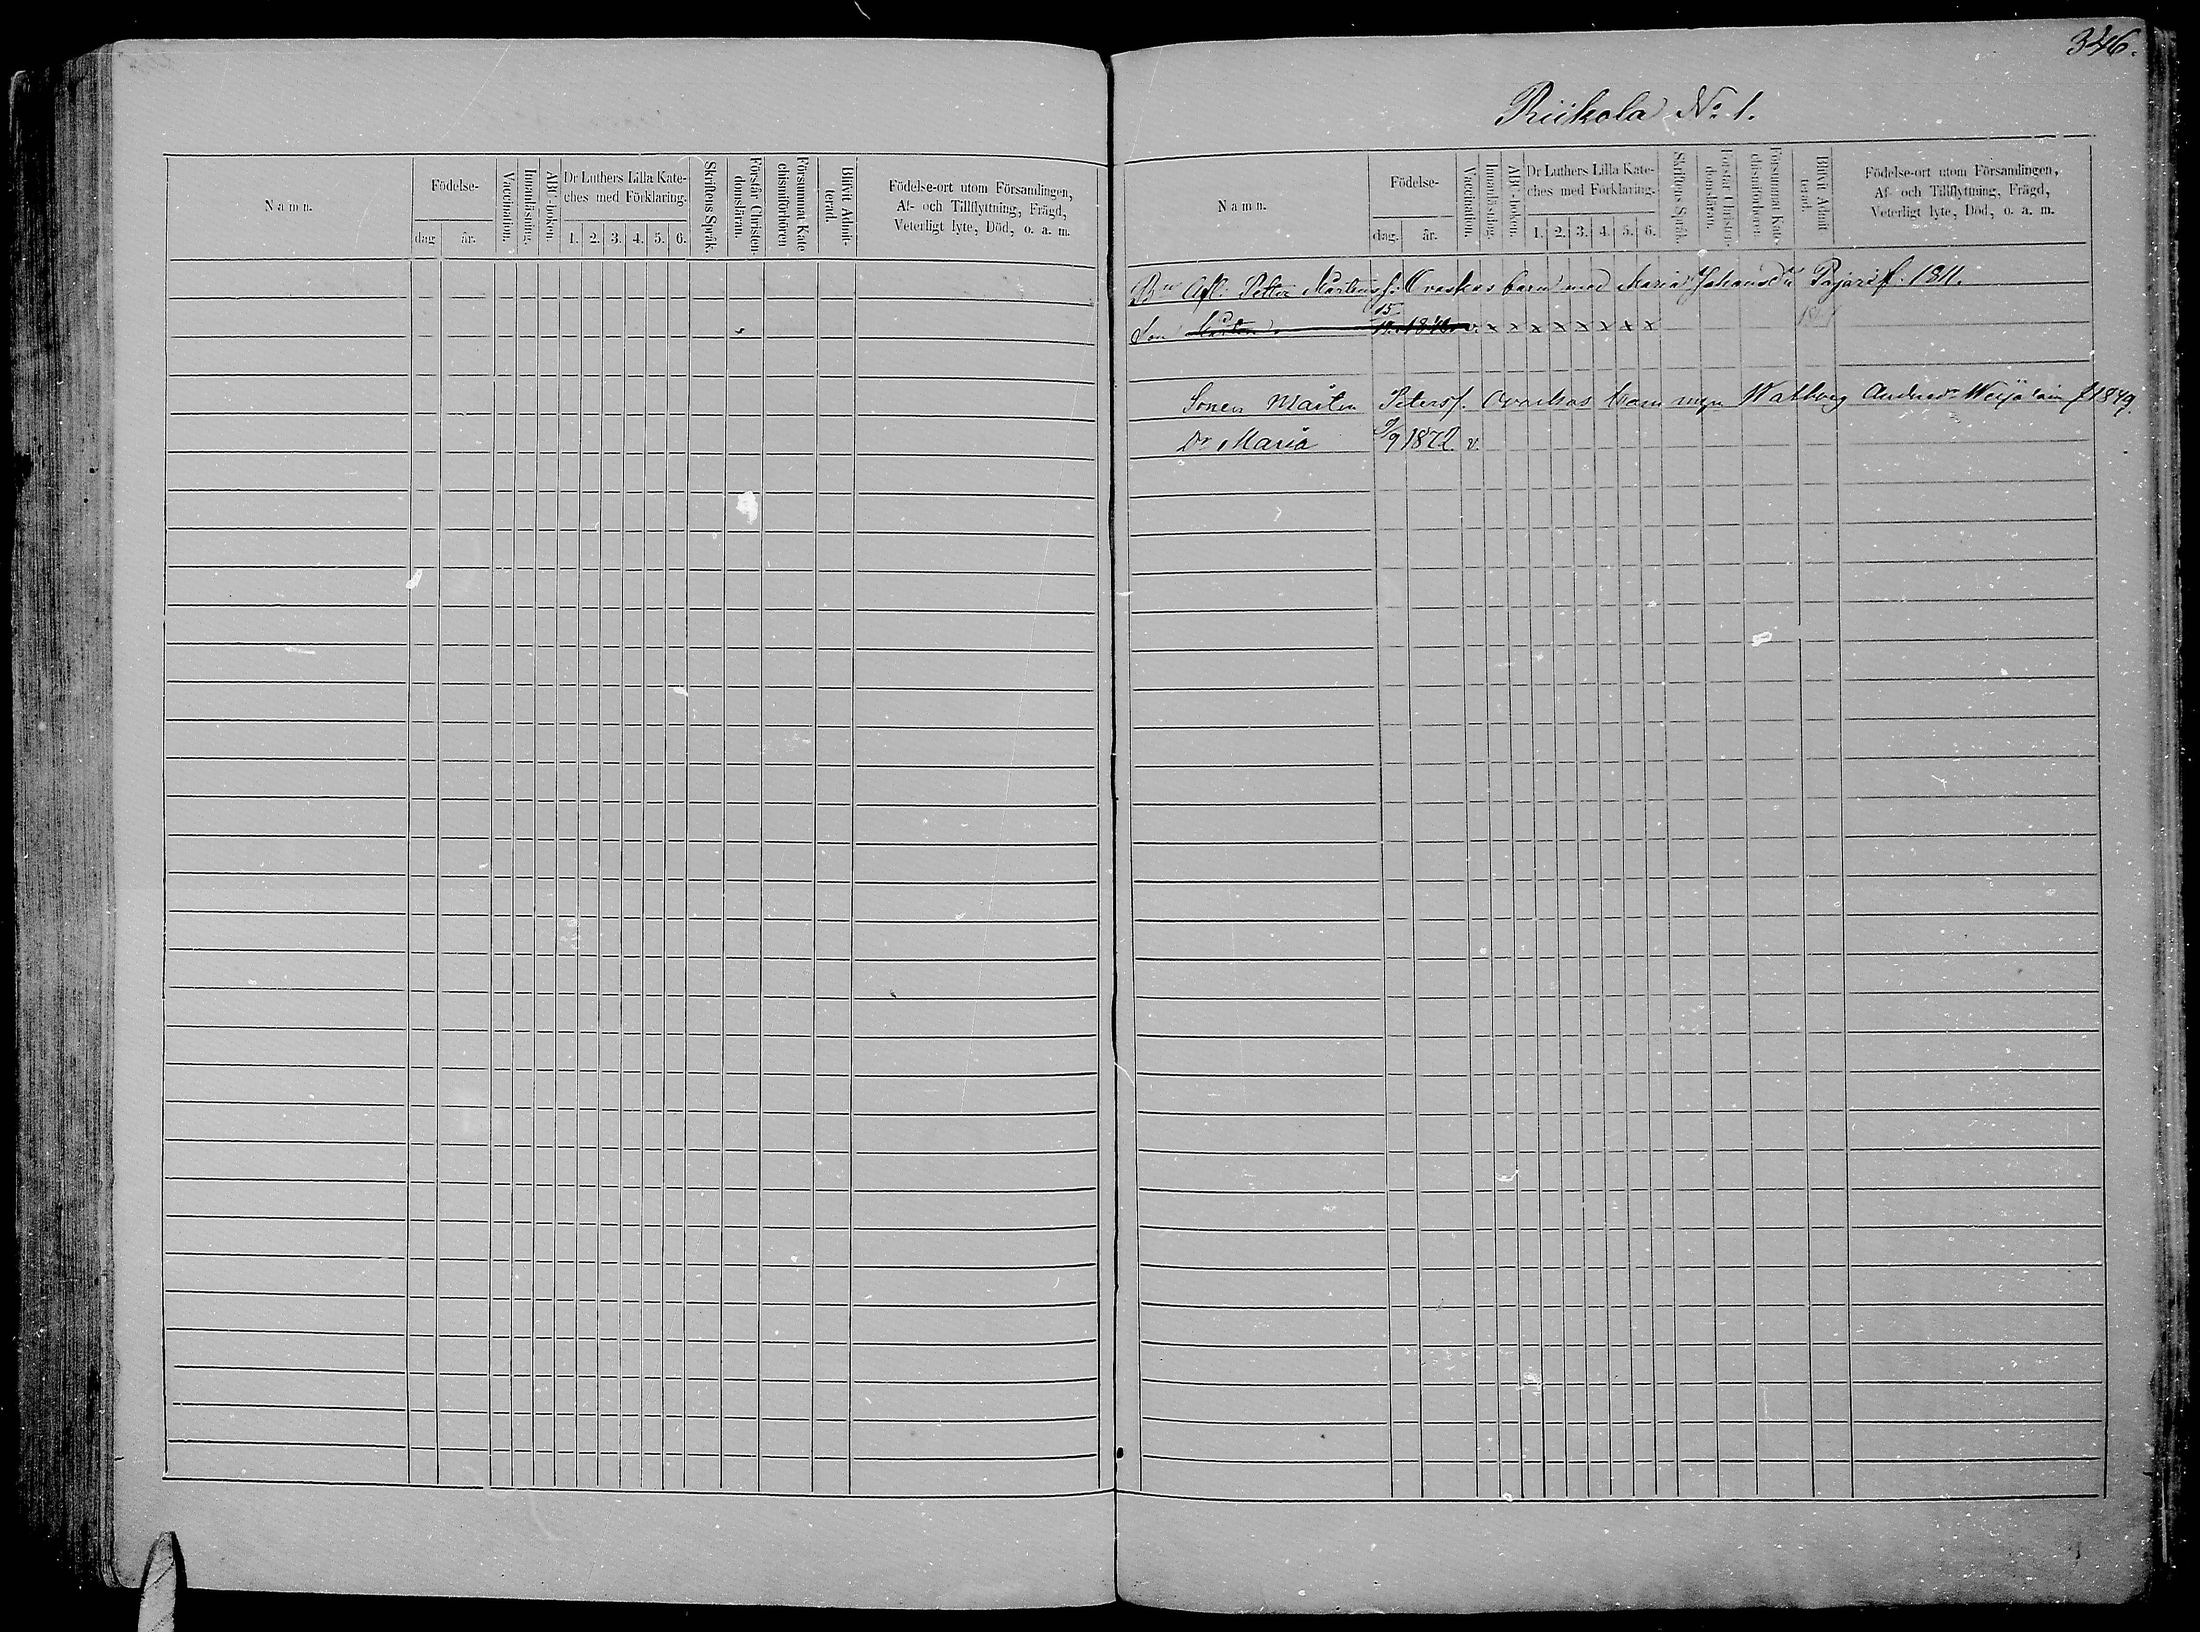 346.
Riikola No 1.
Namn.
Födelse-
dag
år.
Vaccination.
Innanläsning.
ABC-boken.
Dr Luthers Lilla Kate-
ches med Förklaring.
1. 2. 3. 4. 5. 6.
Skriftens Språk.
Förstår Christen-
domsläran.
Försummat Kate
chismiförhören
Blifvit Admit-
terad.
Födelse-ort utom Församlingen,
Af- och Tillflyttning, Frägd,
Veterligt lyte, Död, o. a. m.
Namn.
Födelse-
dag.
år.
Vaccination.
Innanläsning.
ABC-boken.
Dr Luthers Lilla Kate-
ches med Förklaring.
1. 2. 3. 4. 5. 6.
Skriftens Språk.
Förstår Christen-
domsläran.
Försummat Kate-
chismiförhören.
Blifvit Admit
terad.
Födelse-ort utom Församlingen,
Af- och Tillflyttning, Frägd,
Veterligt lyte, Död, o. a. m.
Petter Mårtens Oraskas barn med Maria Johansdr f. 1811.
Son x x x x x x x x
Sonen Mårten Petersf. Oraskas barn Walborg Andersdr f 1849.
Dr Maria 9/9 1872. v.